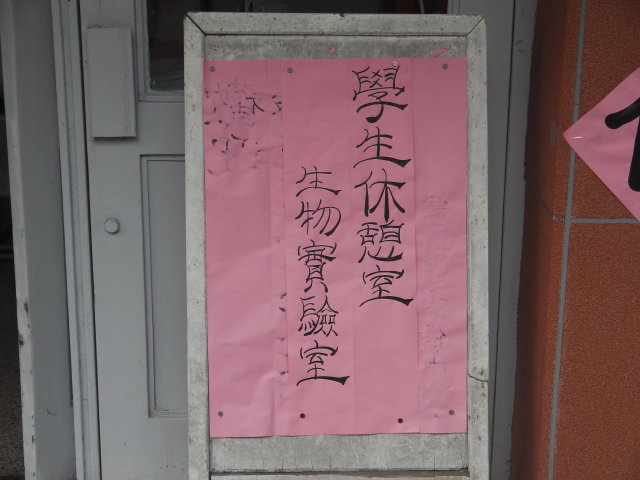 學生休憩室
生物實驗室